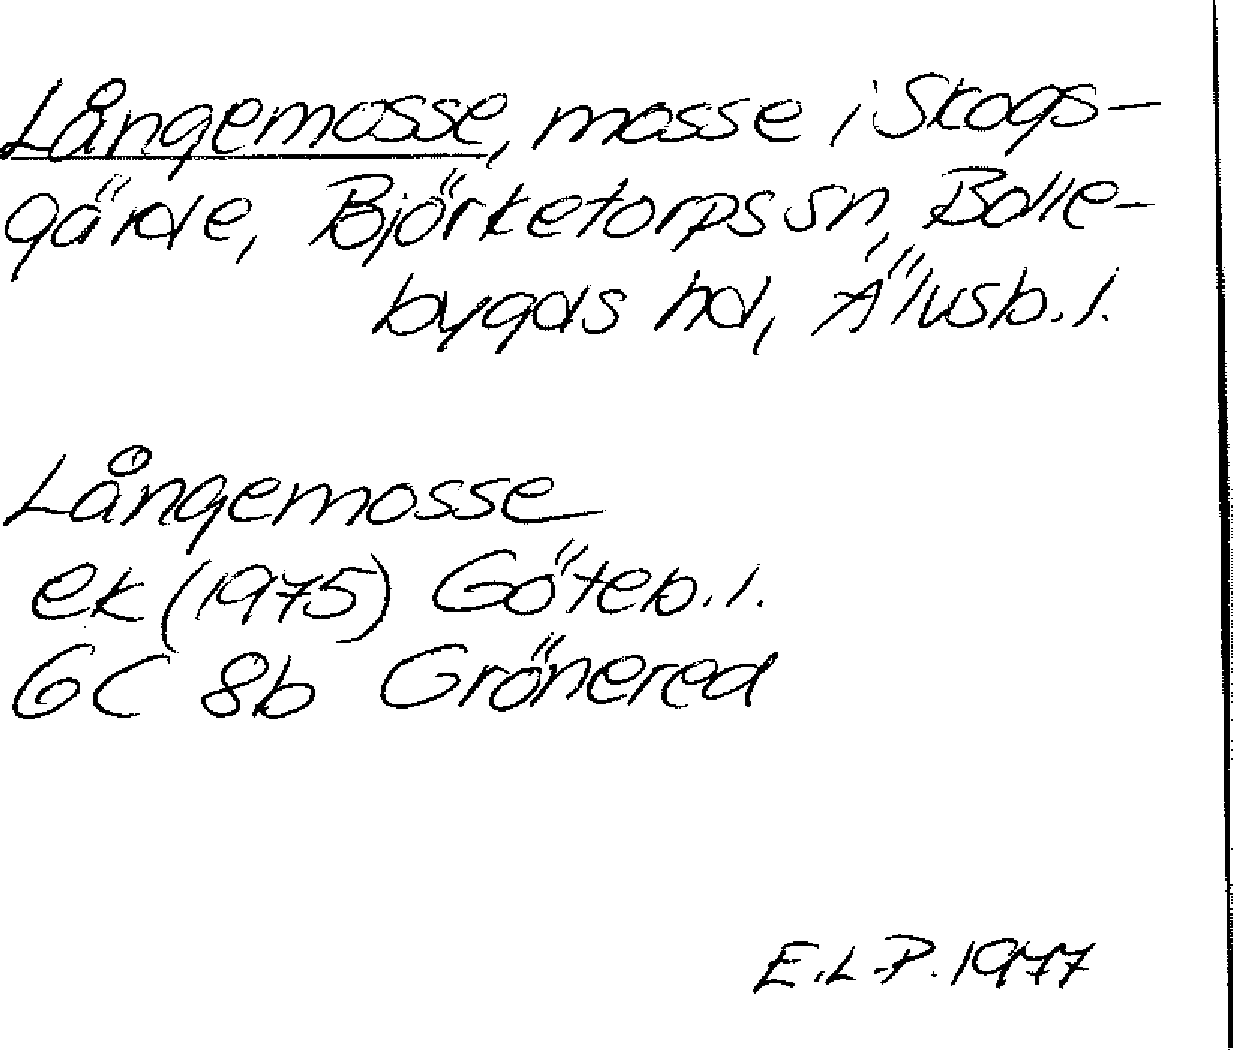 Långemosse, mosse i Skogs-
gärde, Björketorps sn, Bolle-
bygds hd, Älvsb. l.
Långemosse
ek (1975) Göteb. l.
GC 8b Grönered
E. L-P. 1977